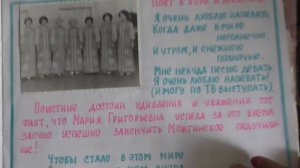 ПОЁТ В ХОРЕ И
Я ОЧЕНЬ ЛЮБЛЮ НАПЕВАТЬ,
КОГДА ДАЖЕ В МИРЕ
НЕСОЛНЕЧНО,
И УТРОМ, И СНЕЖНОЮ
ПОЛНОЧЬЮ.
МНЕ НЕКУДА ПЕСНЮ ДЕВАТЬ,
Я ОЧЕНЬ ЛЮБЛЮ НАПЕВАТЬ!
(И МОГУ ПО ТВ ВЫСТУПАТЬ)
ПОИСТИНЕ ДОСТОИН УДИВЛЕНИЯ И УВАЖЕНИЯ ТОТ
ФАКТ, ЧТО МАРИЯ ГРИГОРЬЕВНА УСПЕЛА ЗА ЭТО ВРЕМЯ
ЗАОЧНО УСПЕШНО ЗАКОНЧИТЬ МОЖГИНСКОЕ ПЕДУЧИЛИ-
ЩЕ!
ЧТОБЫ СТАЛО В ЭТОМ МИРЕ